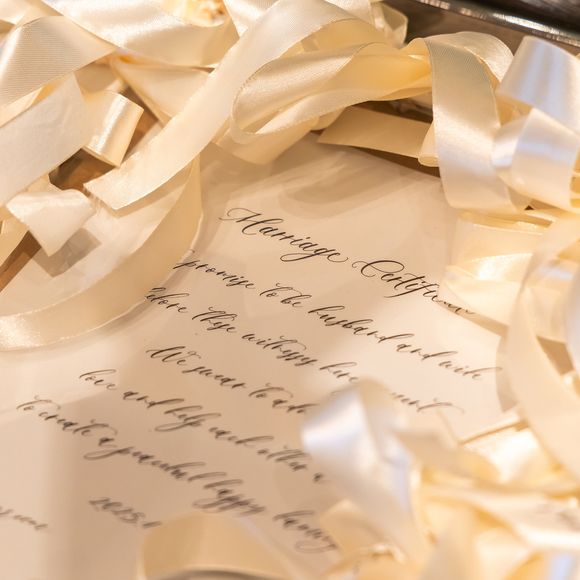 Marriage Certificate
promise to be husband and wife
before these witnesses here present
We swear to
love and help each other
to create a peaceful, happy, loving
2025.